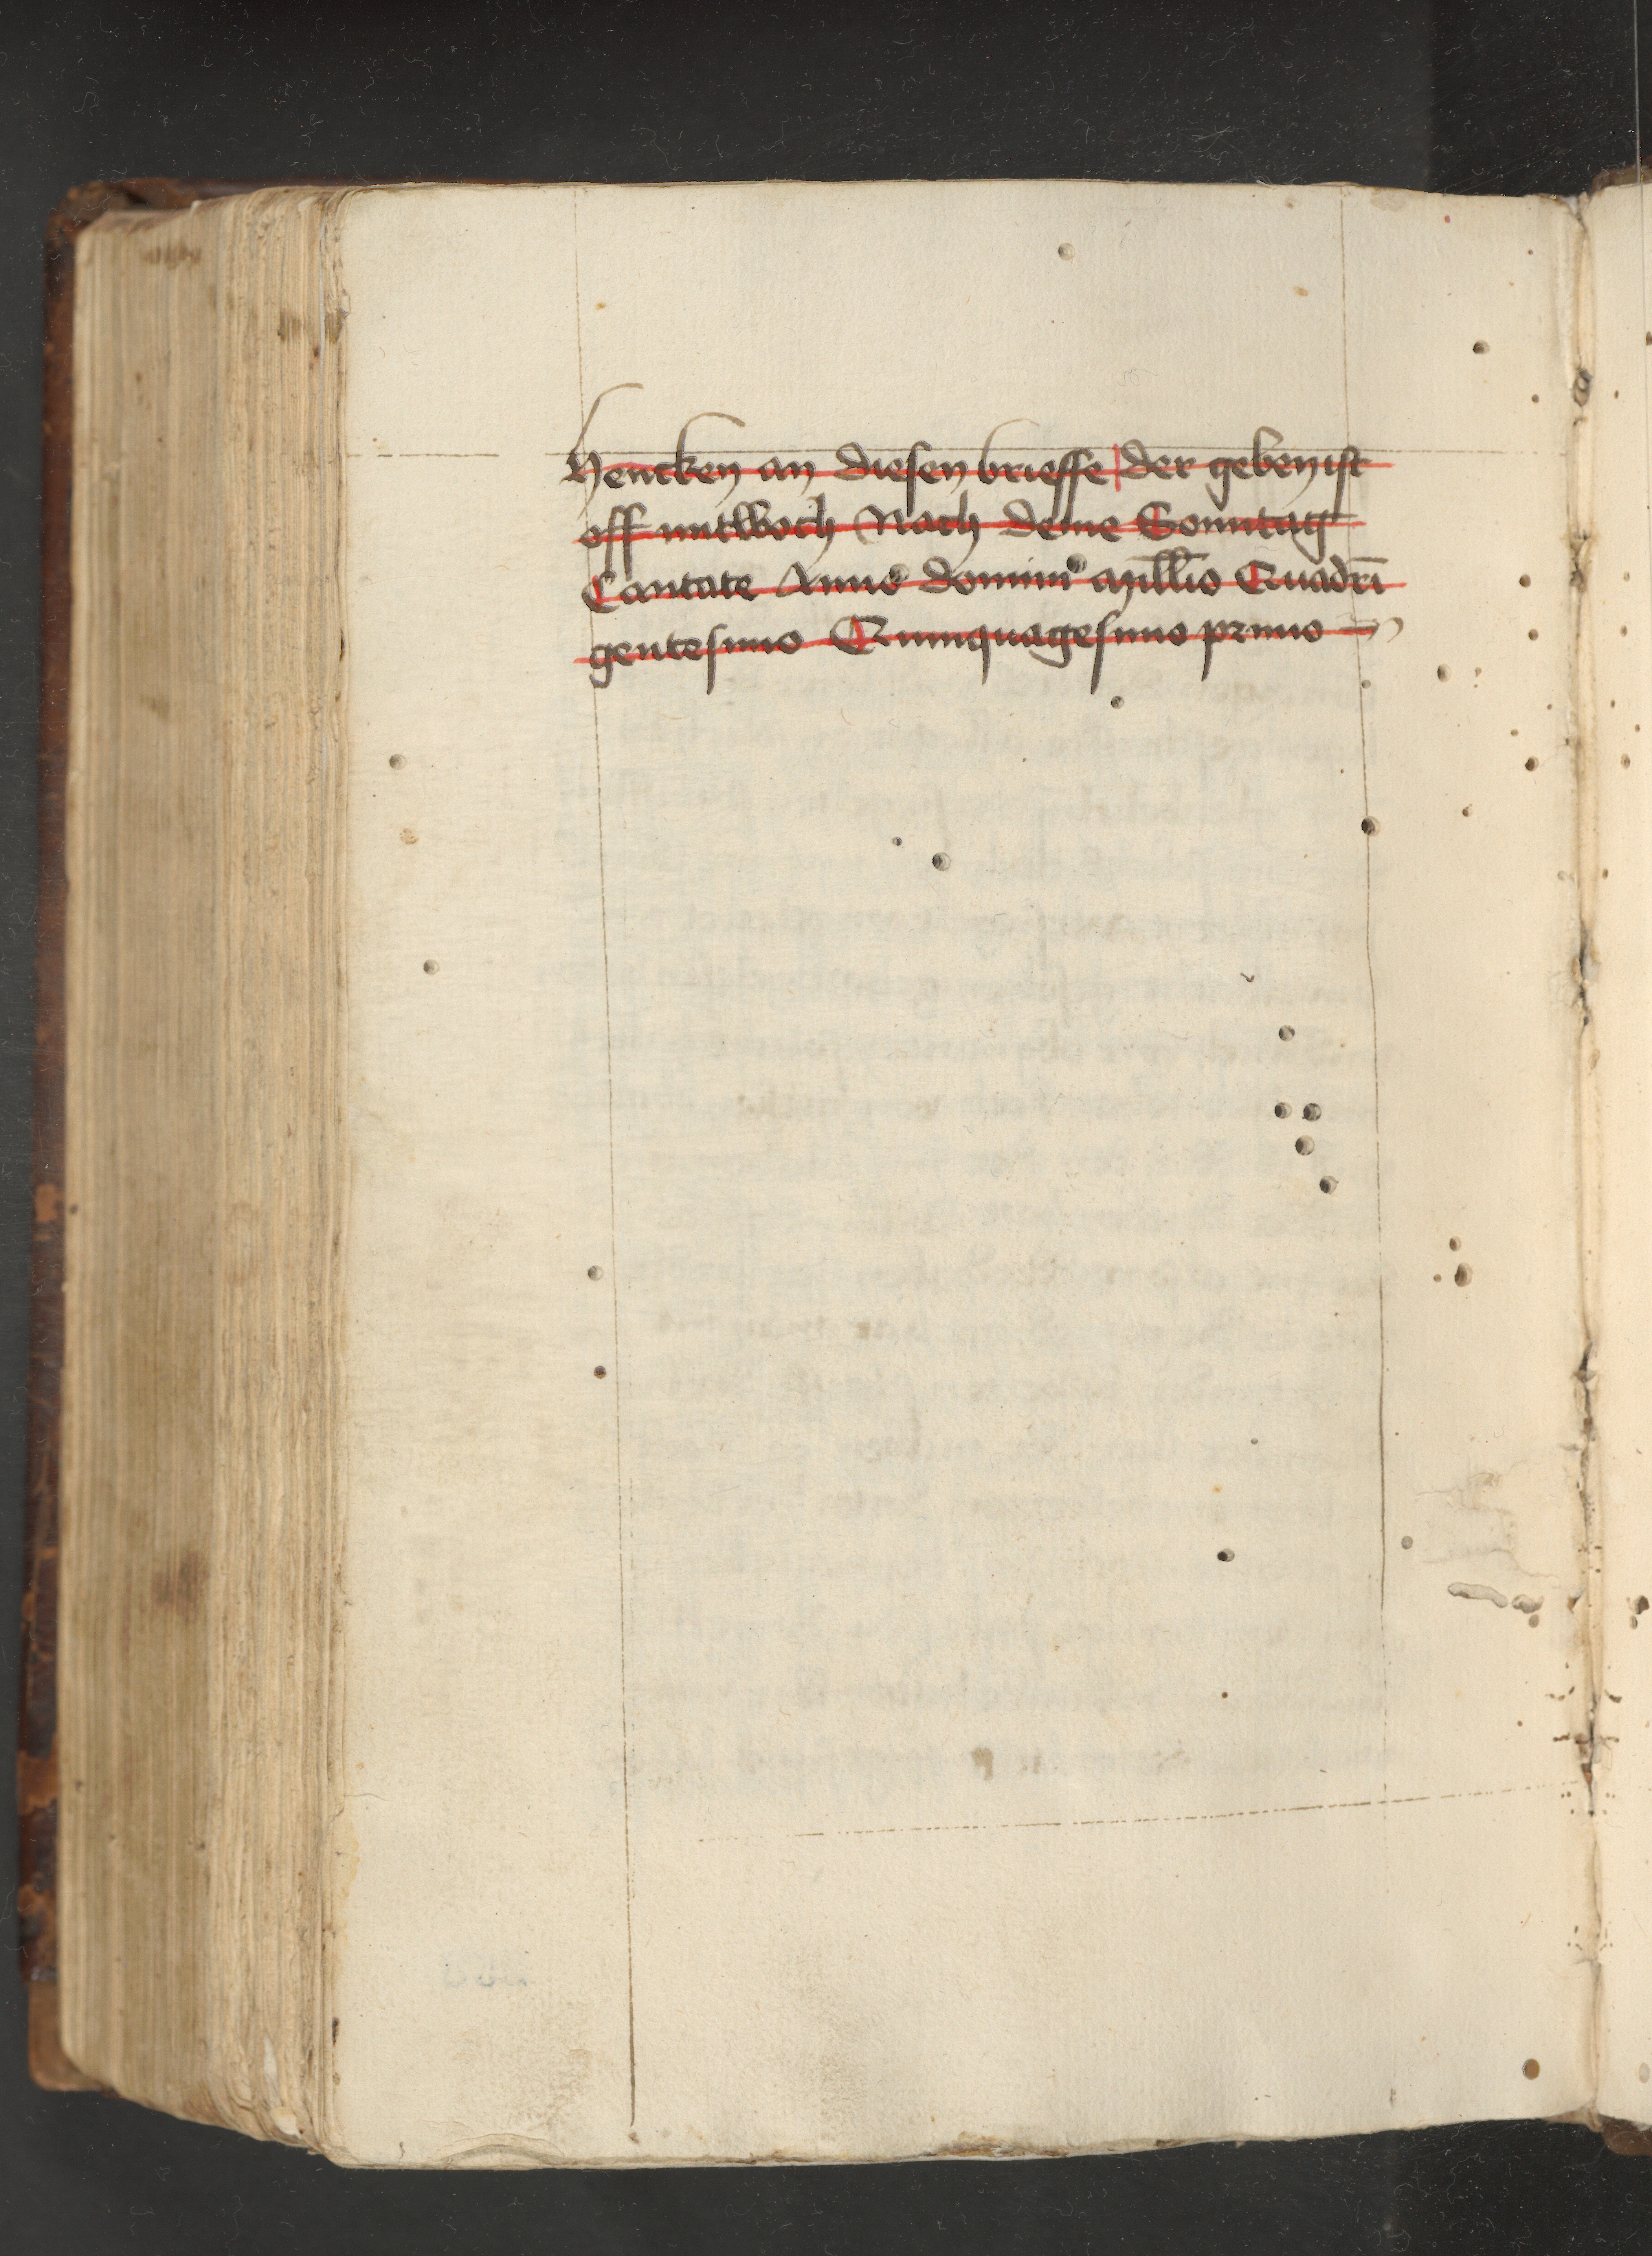 hencken an diesen brieffe der geben ist
off mitwoch Nach deme Sonntag
Cantate Anno domini Millo Quadri
gentesimo Quinquagesimo primo